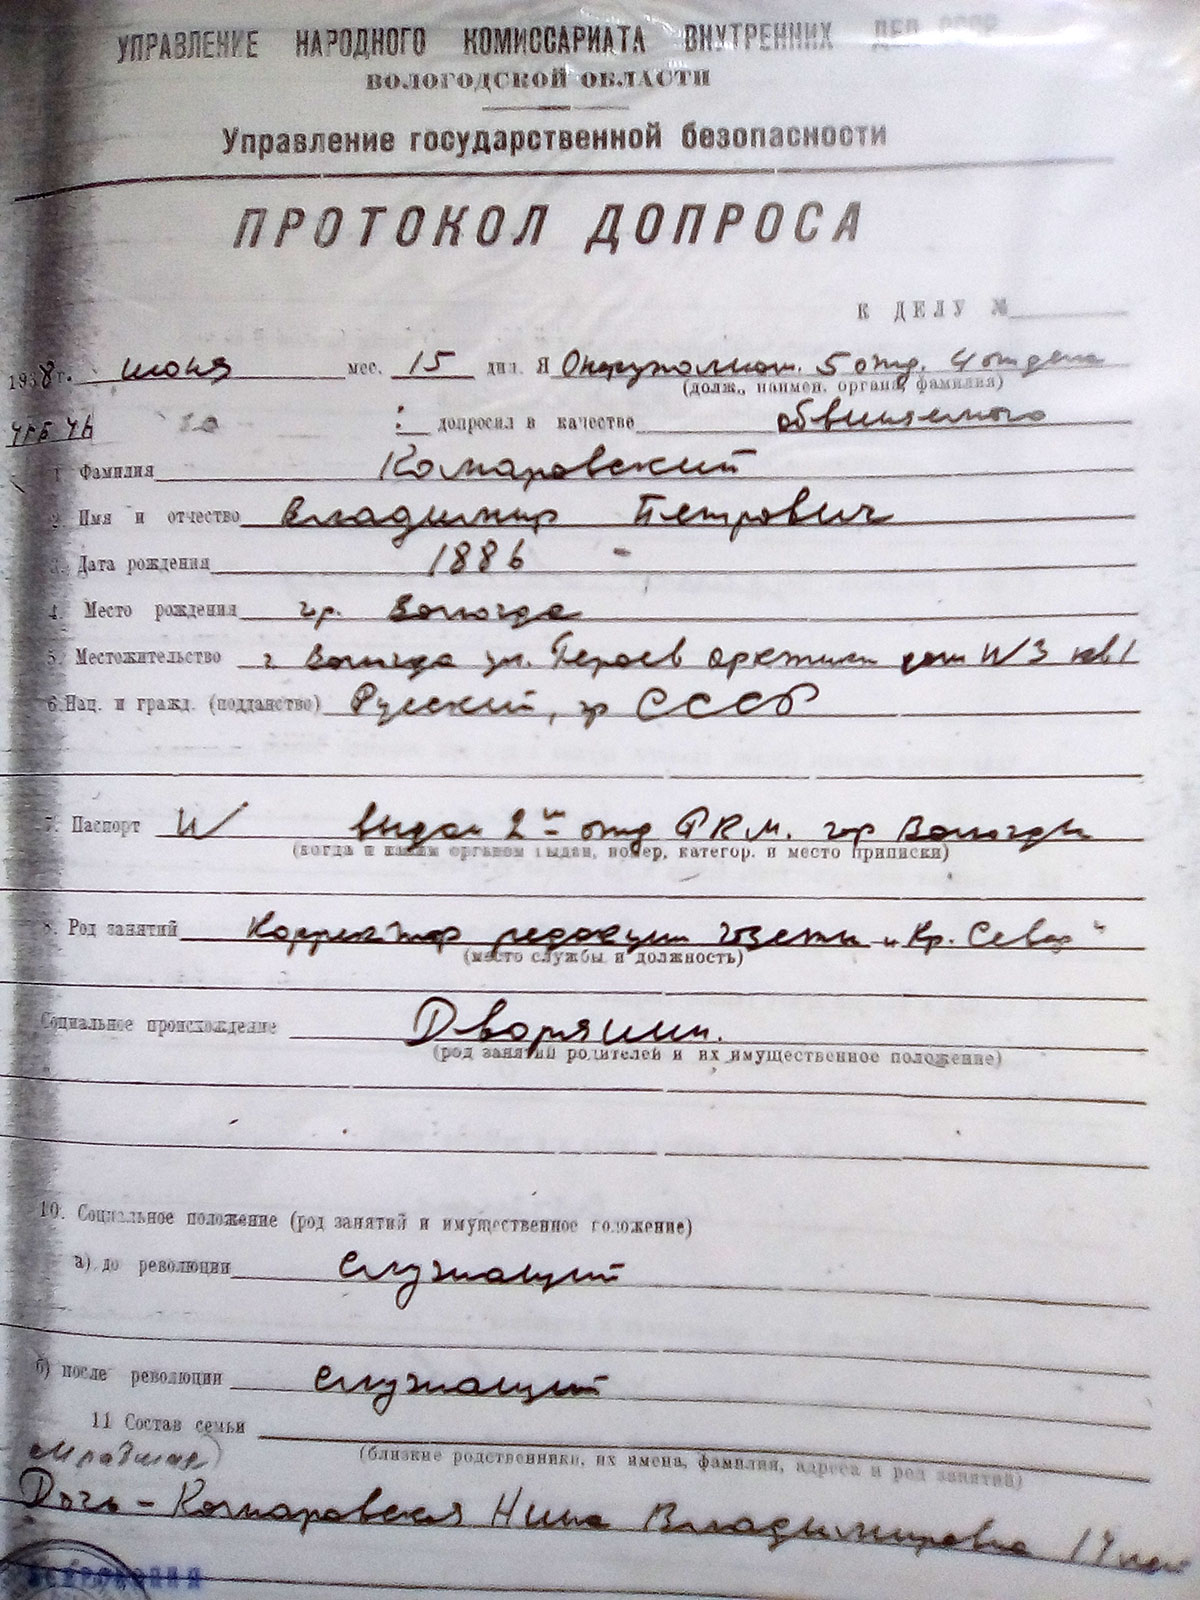 УПРАВЛЕНИЕ НАРОДНОГО КОМИССАРИАТА ВНУТРЕННИХ ДЕЛ СССР
ВОЛОГОДСКОЙ ОБЛАСТИ
Управление государственной безопасности
ПРОТОКОЛ ДОПРОСА
К ДЕЛУ №
1938 г. июня мес. 15 дня. Я Оперуполном. 5 отд. 4 отдела
(долж., наимен. органа, фамилия)
УГБ допросил в качестве обвиняемого
1 Фамилия Комаровский
2. Имя и отчество Владимир Петрович
3. Дата рождения 1886
4. Место рождения гр. Вологда
5. Местожительство г. Вологда ул. Героев Арктики дом N 3 кв 1
6. Нац. и гражд. (подданство) Русский, гр СССР
7. Паспорт N выдан 2 отд Р.К.М. гор Вологды
(когда и каким органом выдан, номер, категор. и место приписки)
8. Род занятий Корректор редакции газеты „Кр. Север"
(место службы и должность)
Социальное происхождение Дворянин.
(род занятий родителей и их имущественное положение)
10. Социальное положение (род занятий и имущественное положение)
а) до революции служащий
б) после революции служащий
11 Состав семьи
(близкие родственники, их имена, фамилии, адреса и род занятий)
младшая)
Дочь – Комаровская Нина Владимировна 14 лет